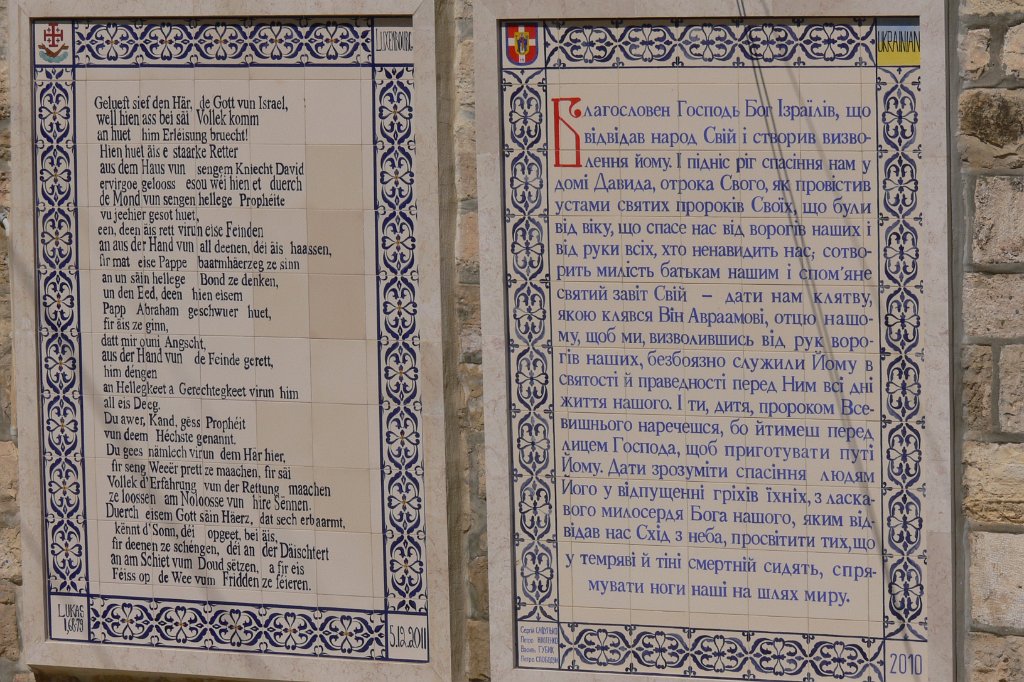 LUXEMBOURG
Gelueft sief den Här, de Gott vun Israel,
well hien ass bei säi Vollek komm
an huet him Erléisung bruecht!
Hien huet äis e staarke Retter
aus dem Haus vun sengem Kniecht David
ervirgoe gelooss esou wéi hien et duerch
de Mond vun sengen hellege Prophéite
vu jeehier gesot huet,
een, deen äis rett virun eise Feinden
an aus der Hand vun all deenen, déi äis haassen,
fir mat eise Pappe baarmhäerzeg ze sinn
an un säin hellege Bond ze denken,
un den Eed, deen hien eisem
Papp Abraham geschwuer huet,
fir äis ze ginn,
datt mir ouni Angscht,
aus der Hand vun de Feinde gerett,
him déngen
an Hellegkeet a Gerechtegkeet virun him
all eis Deeg.
Du awer, Kand, gëss Prophéit
vun deem Héchste genannt.
Du gees nämlech virun dem Här hier,
fir seng Weeër prett ze maachen, fir säi
Vollek d'Erfahrung vun der Rettung maachen
ze loossen am Noloosse vun hire Sënnen.
Duerch eisem Gott säin Häerz, dat sech erbaarmt,
kënnt d'Sonn, déi opgeet, bei äis,
fir deenen ze schéngen, déi an der Däischtert
an am Schiet vum Doud sëtzen, a fir eis
Féiss op de Wee vum Fridden ze féieren.
LUKAS
1,68-79
5.12.2011
UKRAINIAN
Благословен Господь Бог Ізраїлів, що
відвідав народ Свій і створив визво-
лення йому. І підніс ріг спасіння нам у
домі Давида, отрока Свого, як провістив
устами святих пророків Своїх, що були
від віку, що спасе нас від ворогів наших і
від руки всіх, хто ненавидить нас; сотво-
рить милість батькам нашим і спом'яне
святий завіт Свій – дати нам клятву,
якою клявся Він Авраамові, отцю нашо-
му, щоб ми, визволившись від рук воро-
гів наших, безбоязно служили Йому в
святості й праведності перед Ним всі дні
життя нашого. І ти, дитя, пророком Все-
вишнього наречешся, бо йтимеш перед
лицем Господа, щоб приготувати путі
Йому. Дати зрозуміти спасіння людям
Його у відпущенні гріхів їхніх, з ласка-
вого милосердя Бога нашого, яким від-
відав нас Схід з неба, просвітити тих,що
у темряві й тіні смертній сидять, спря-
мувати ноги наші на шлях миру.
Сергій
Петро
Василь ГУБИК
Петро СЛОБОДЯН
2010